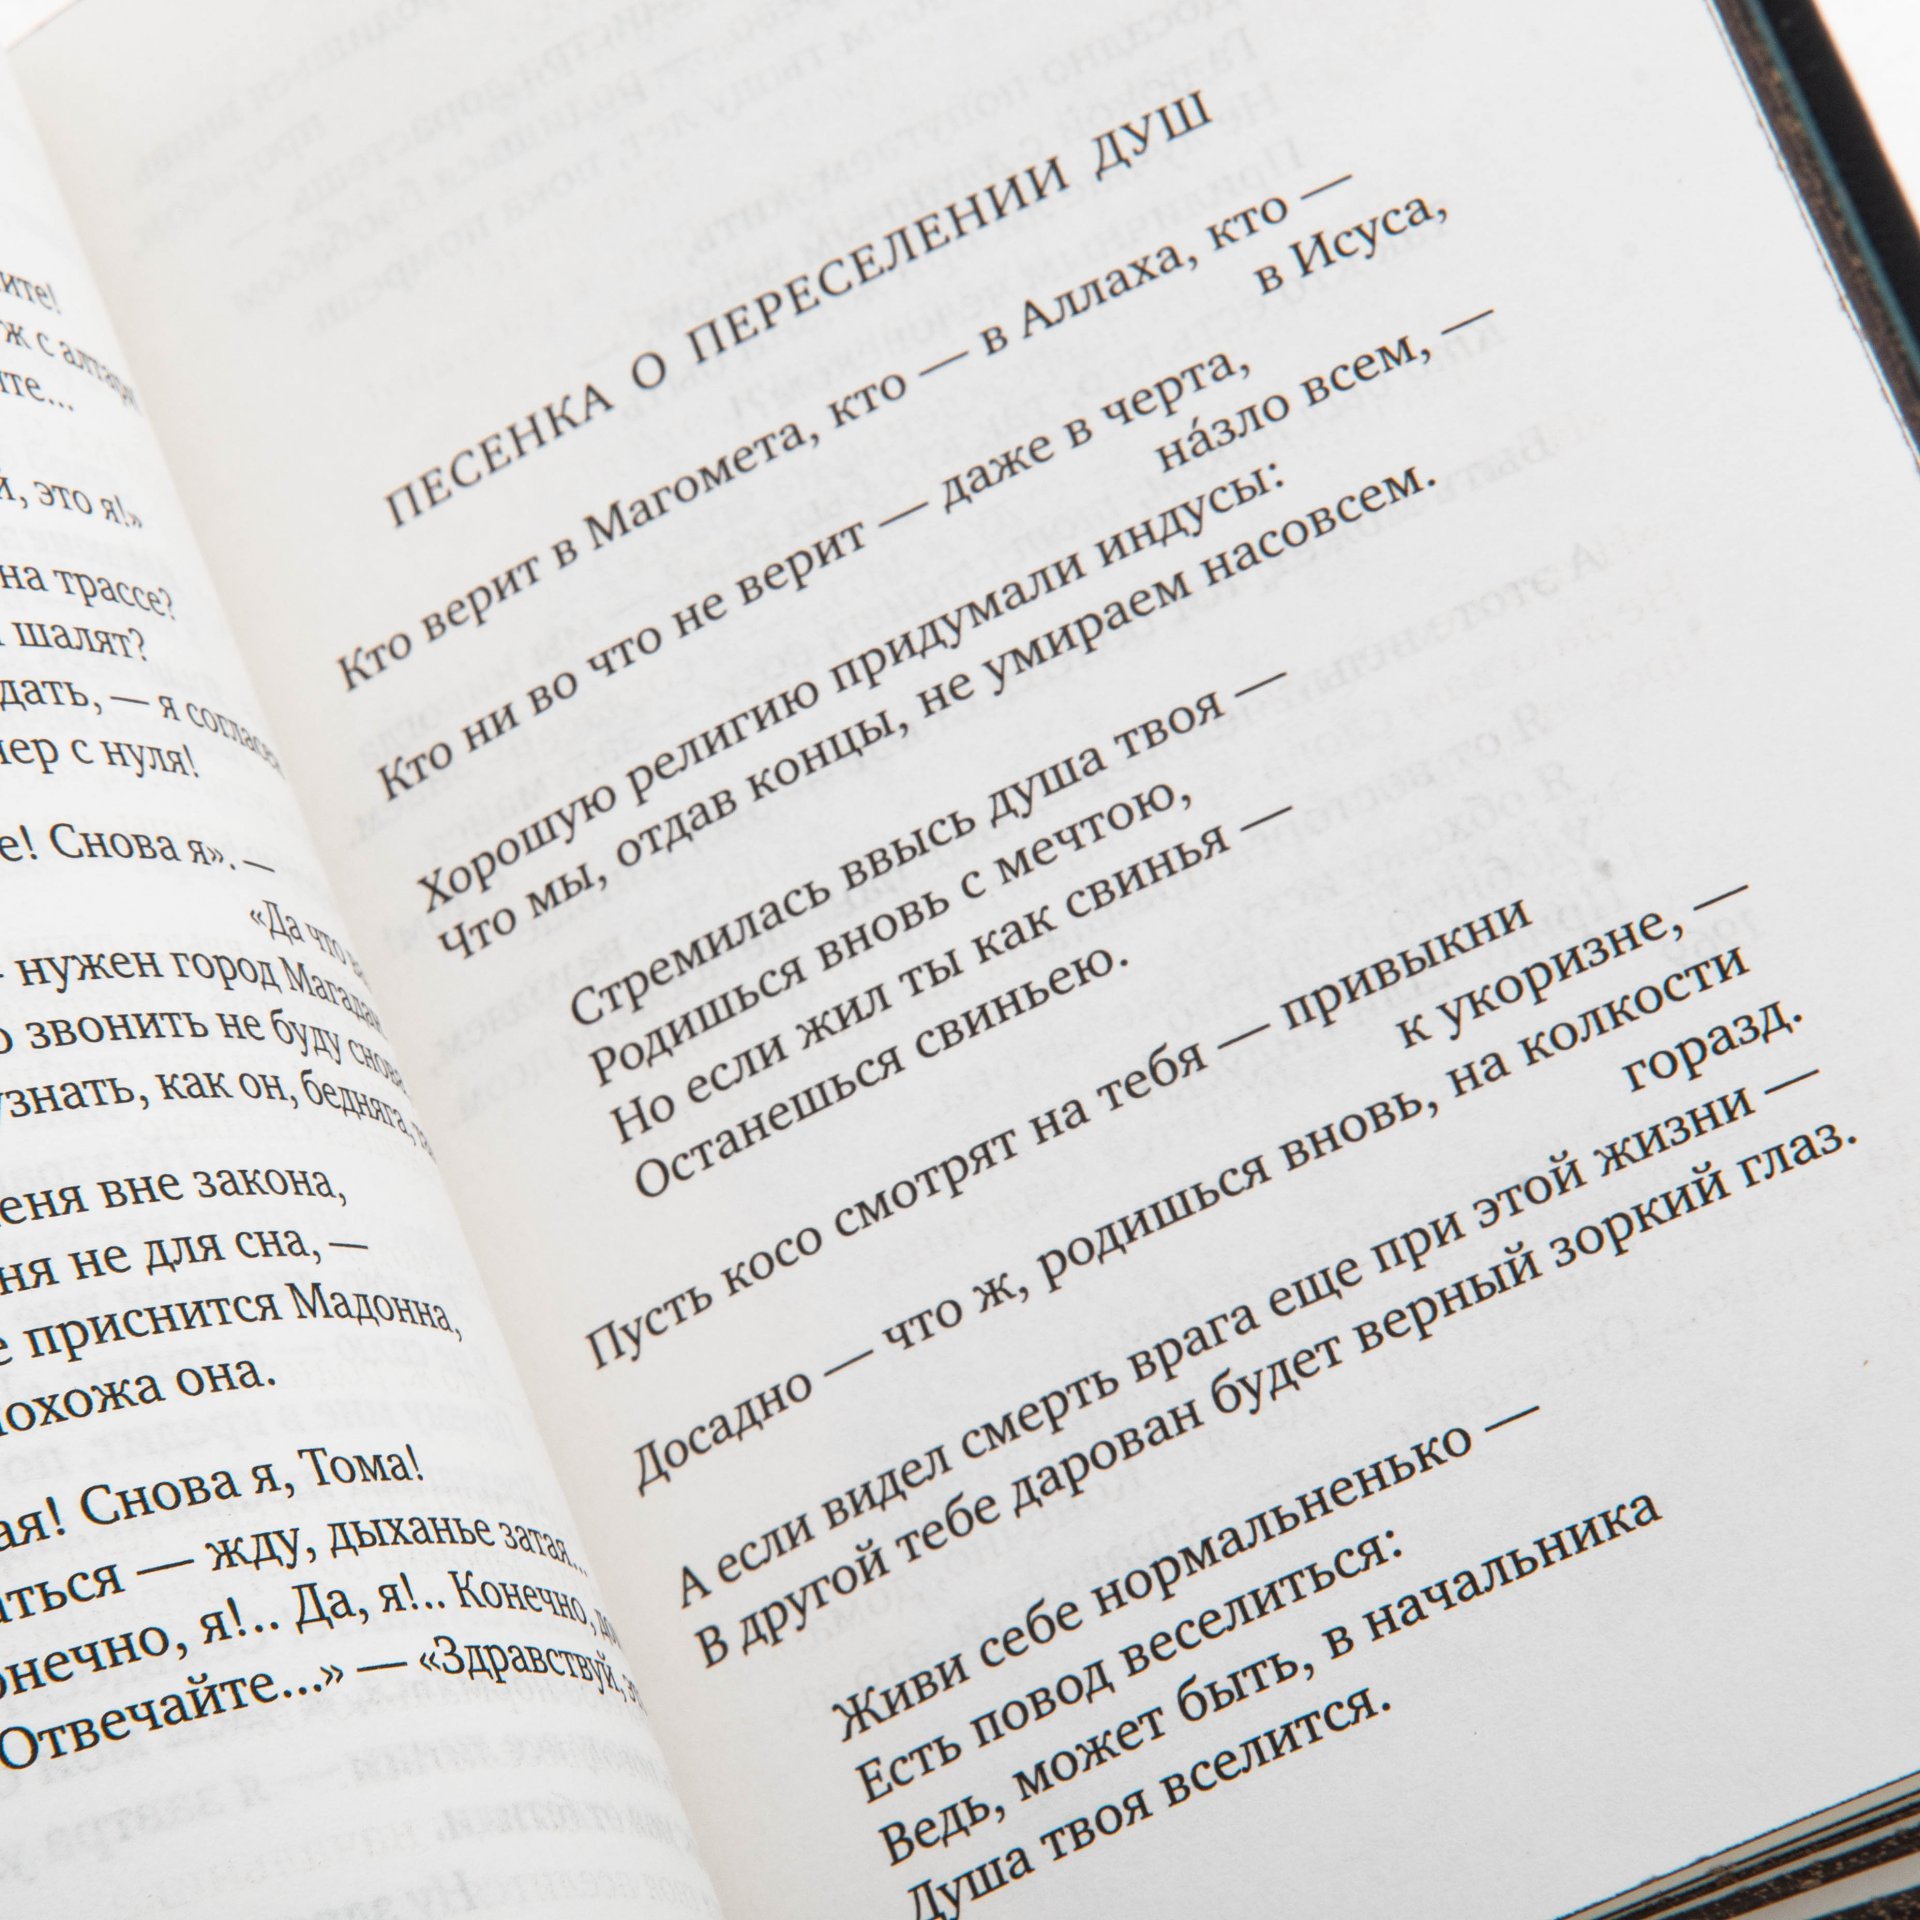 ите!
ж с алтаря
ите...
й, это я!»
на трассе?
шалят?
дать, — я согласен
нер с нуля!
е! Снова я». —
«Да что в
- нужен город Магадан
о звонить не буду снова
узнать, как он, бедняга, та
меня вне закона,
ня не для сна, —
е приснится Мадонна,
похожа она.
ая! Снова я, Тома!
аться — жду, дыханье затая...
онечно, я!.. Да, я!.. Конечно, до
Отвечайте...» — «Здравствуй, эт
ПЕСЕНКА О ПЕРЕСЕЛЕНИИ ДУШ
Кто верит в Магомета, кто — в Аллаха, кто —
в Исуса,
Кто ни во что не верит — даже в черта,
на́зло всем, —
Хорошую религию придумали индусы:
Что мы, отдав концы, не умираем насовсем.
Стремилась ввысь душа твоя —
Родишься вновь с мечтою,
Но если жил ты как свинья —
Останешься свиньею.
Пусть косо смотрят на тебя — привыкни
к укоризне, —
Досадно — что ж, родишься вновь, на колкости
горазд.
А если видел смерть врага еще при этой жизни —
В другой тебе дарован будет верный зоркий глаз.
Живи себе нормальненько —
Есть повод веселиться:
Ведь, может быть, в начальника
Душа твоя вселится.